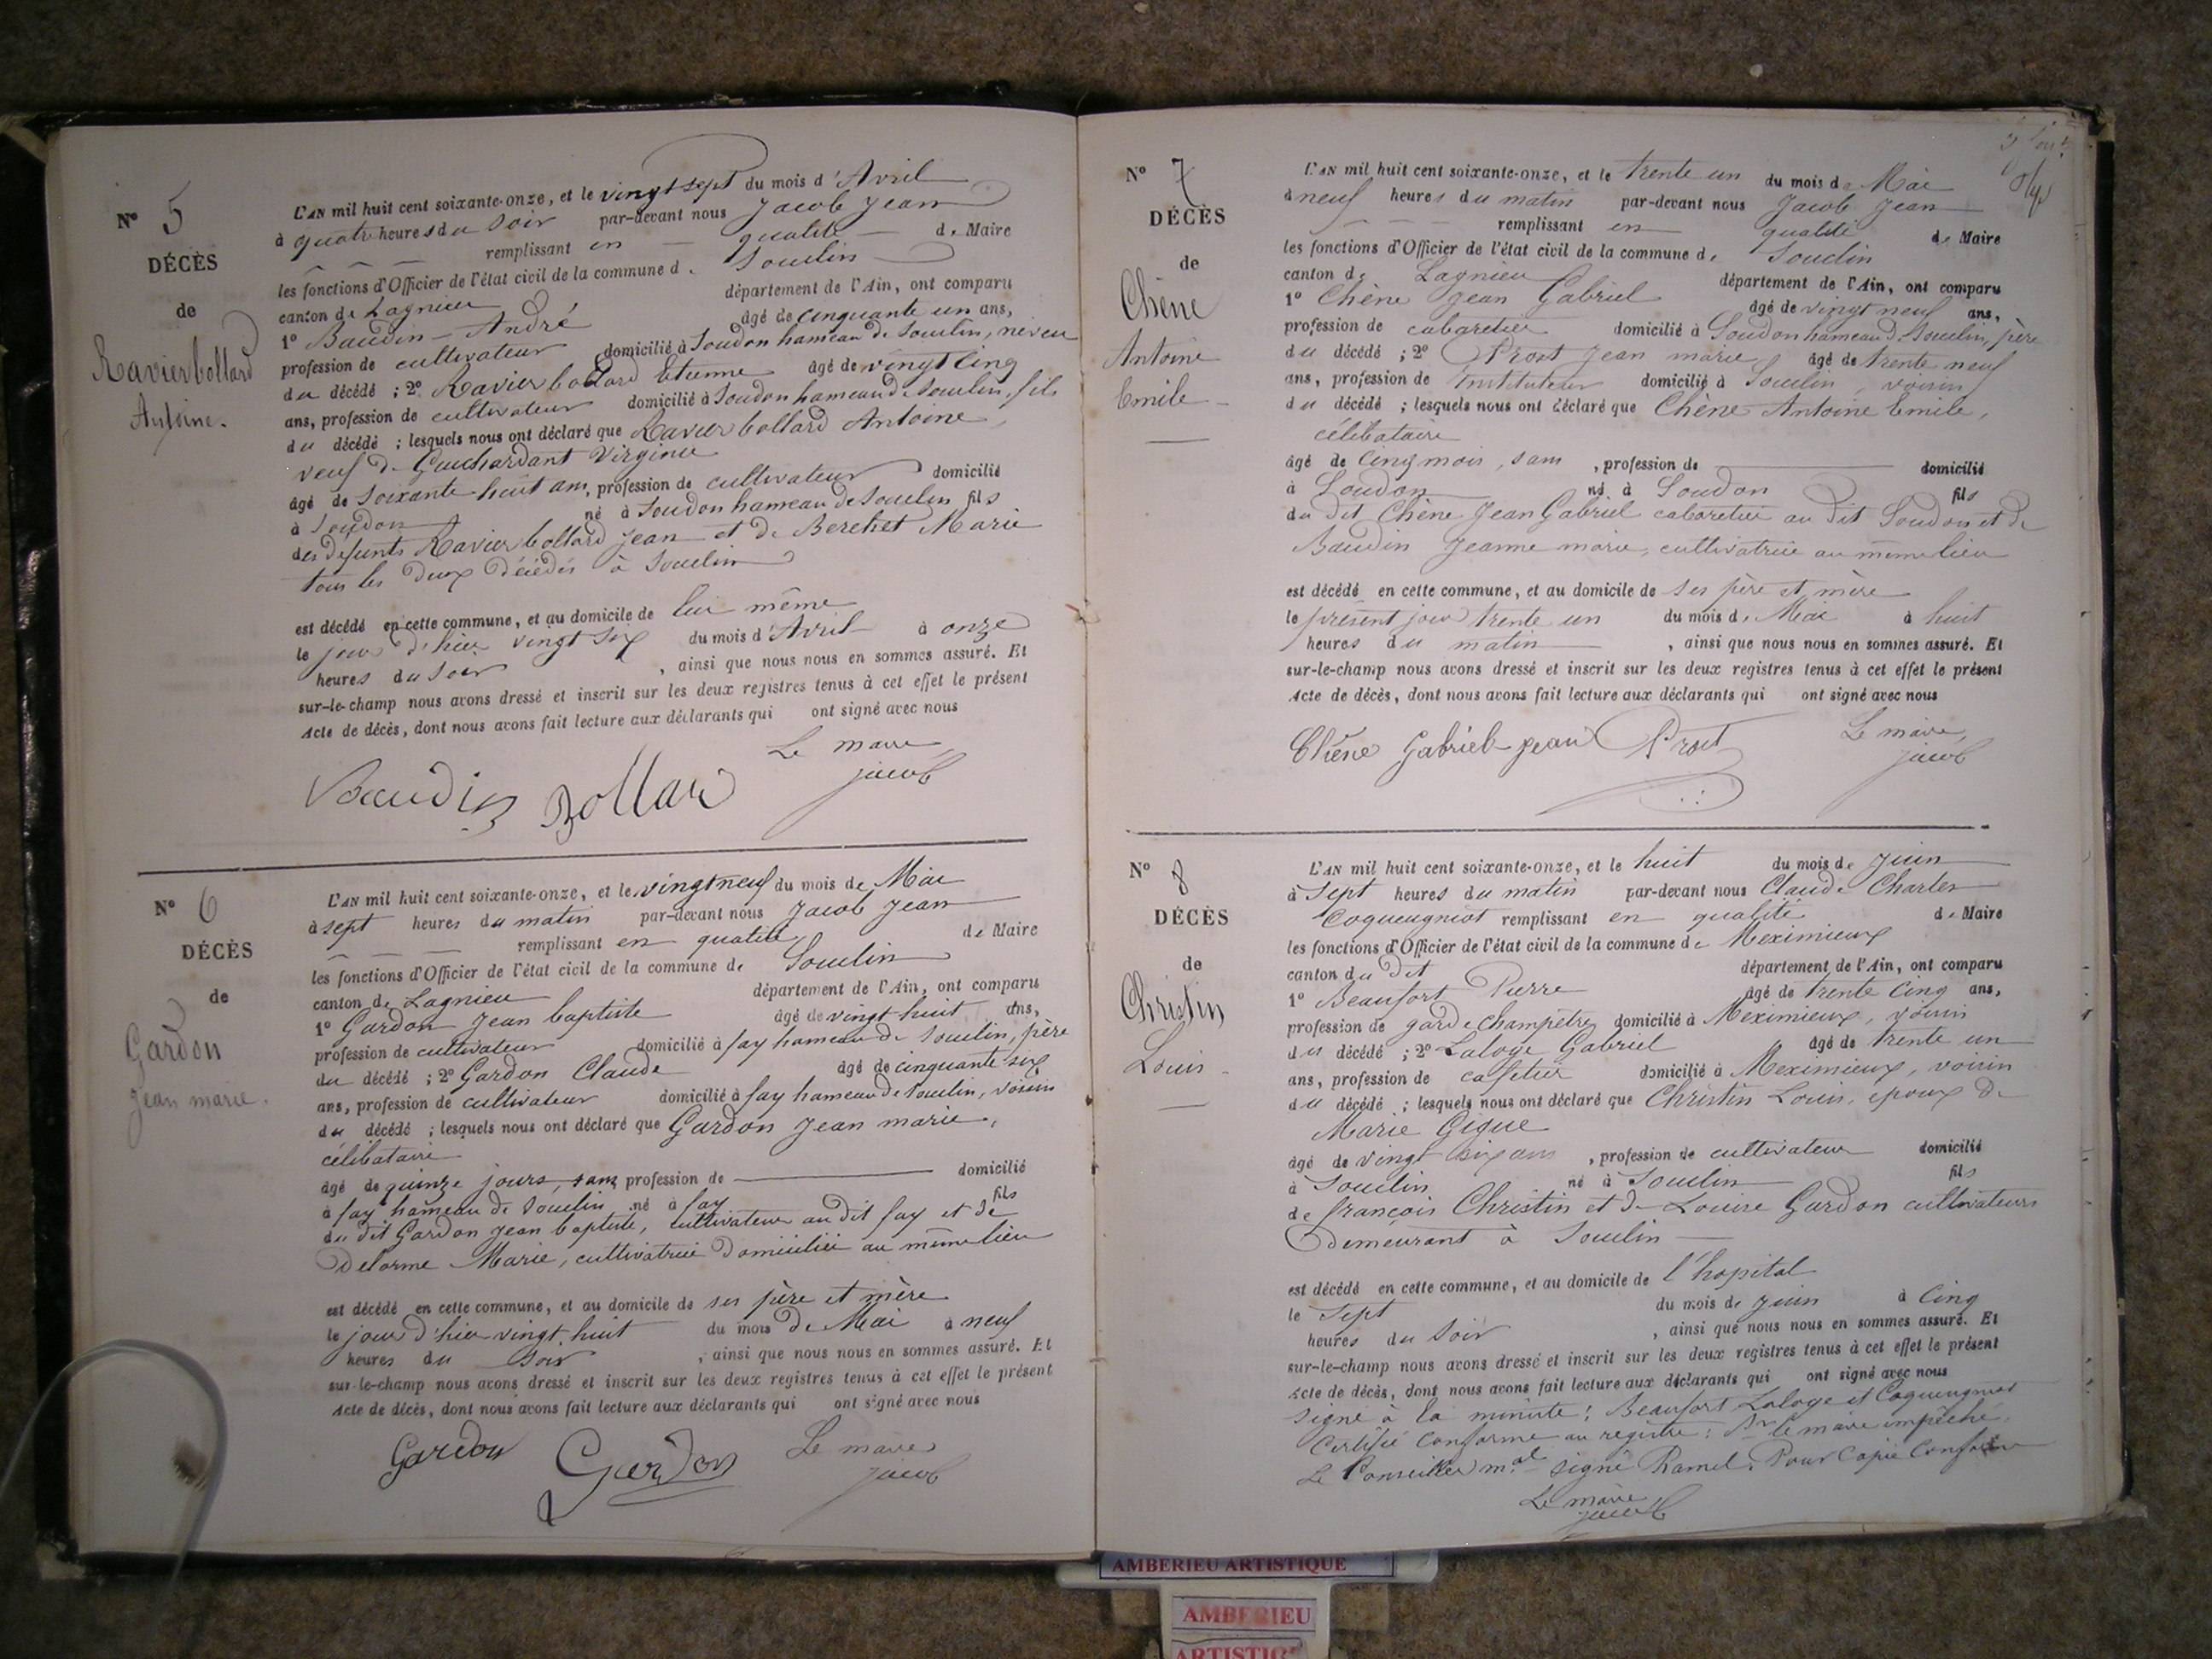 N° 5
DÉCÈS
de
Ravier bollard
Antoine.
L'AN mil huit cent soixante-onze, et le vingt sept du mois d'Avril
à quatre heures du soir par-devant nous Jacob Jean
remplissant en qualité de Maire
les fonctions d'Officier de l'état civil de la commune de Souclin
canton de Lagnieu département de l'Ain, ont comparu
1° Baudin André âgé de cinquante un ans,
profession de cultivateur domicilié à Soudon hameau de Souclin, neveu
du décédé ; 2° Ravier bollard Etienne âgé de vingt cinq
ans, profession de cultivateur domicilié à Soudon hameau de Souclin, fils
du décédé ; lesquels nous ont déclaré que Ravier bollard Antoine,
veuf de Guichardant Virginie
âgé de soixante huit ans, profession de cultivateur domicilié
à Soudon né à Soudon hameau de Souclin fils
des défunts Ravier bollard Jean et de Berchet Marie
tous les deux décédés à Souclin
est décédé en cette commune, et au domicile de lui même
le jour d'hier vingt six du mois d'Avril à onze
heures du soir, ainsi que nous nous en sommes assuré. Et
sur-le-champ nous avons dressé et inscrit sur les deux registres tenus à cet effet le présent
Acte de décès, dont nous avons fait lecture aux déclarants qui ont signé avec nous
Le maire
Baudin Bollard Jacob
N° 6
DÉCÈS
de
Gardon
Jean marie.
L'AN mil huit cent soixante-onze, et le vingt neuf du mois de Mai
à sept heures du matin par-devant nous Jacob Jean
remplissant en qualité de Maire
les fonctions d'Officier de l'état civil de la commune de Souclin
canton de Lagnieu département de l'Ain, ont comparu
1° Gardon Jean baptiste âgé de vingt huit ans,
profession de cultivateur domicilié à fay hameau de Souclin, père
du décédé ; 2° Gardon Claude âgé de cinquante six
ans, profession de cultivateur domicilié à fay hameau de Souclin, voisin
du décédé ; lesquels nous ont déclaré que Gardon Jean marie,
célibataire
âgé de quinze jours, sans profession de domicilié
à fay hameau de Souclin né à fay fils
du dit Gardon Jean baptiste, cultivateur au dit fay et de
Delorme Marie, cultivatrice domiciliée au même lieu
est décédé en cette commune, et au domicile de ses père et mère
le jour d'hier vingt huit du mois de Mai à neuf
heures du soir, ainsi que nous nous en sommes assuré. Et
sur-le-champ nous avons dressé et inscrit sur les deux registres tenus à cet effet le présent
Acte de décès, dont nous avons fait lecture aux déclarants qui ont signé avec nous
Gardon Gardon Le maire
Jacob
N° 7
DÉCÈS
de
Chêne
Antoine
Emile
L'AN mil huit cent soixante-onze, et le trente un du mois de Mai
à neuf heures du matin par-devant nous Jacob Jean
remplissant en qualité de Maire
les fonctions d'Officier de l'état civil de la commune de Souclin
canton de Lagnieu département de l'Ain, ont comparu
1° Chêne Jean Gabriel âgé de vingt neuf ans,
profession de cabaretier domicilié à Soudon hameau de Souclin, père
du décédé ; 2° Prost Jean marie, âgé de trente neuf
ans, profession de Instituteur domicilié à Souclin, voisin
du décédé ; lesquels nous ont déclaré que Chêne Antoine Emile,
célibataire
âgé de cinq mois, sans, profession de domicilié
à Soudon né à Soudon fils
du dit Chêne Jean Gabriel cabaretier au dit Soudon et de
Baudin Jeanne marie, cultivatrice au même lieu
est décédé en cette commune, et au domicile de ses père et mère
le présent jour trente un du mois de Mai à huit
heures du matin, ainsi que nous nous en sommes assuré. Et
sur-le-champ nous avons dressé et inscrit sur les deux registres tenus à cet effet le présent
Acte de décès, dont nous avons fait lecture aux déclarants qui ont signé avec nous
Chêne Gabriel jean Prost Le maire,
Jacob
N° 8
DÉCÈS
de
Christin
Louis
L'AN mil huit cent soixante-onze, et le huit du mois de Juin
à sept heures du matin par-devant nous Claude Charles
Coqueugniot remplissant en qualité de Maire
les fonctions d'Officier de l'état civil de la commune de Meximieux
canton du dit département de l'Ain, ont comparu
1° Beaufort Pierre âgé de trente cinq ans,
profession de garde champêtre domicilié à Meximieux, voisin
du décédé ; 2° Laloge Gabriel âgé de trente un
ans, profession de cafetier domicilié à Meximieux, voisin
du décédé ; lesquels nous ont déclaré que Christin Louis, epoux de
Marie Gigue
âgé de vingt six ans, profession de cultivateur domicilié
à Souclin né à Souclin fils
de françois Christin et de Louise Gardon cultivateurs
demeurant à Souclin
est décédé en cette commune, et au domicile de l'hopital
le sept du mois de Juin à cinq
heures du soir, ainsi que nous nous en sommes assuré. Et
sur-le-champ nous avons dressé et inscrit sur les deux registres tenus à cet effet le présent
Acte de décès, dont nous avons fait lecture aux déclarants qui ont signé avec nous
signé à la minute : Beaufort Laloge et Coqueugniot
Certifié conforme au registre : Pr le maire empêché.
Le Conseiller m.al signé Ramel. Pour Copie Conforme
Le maire
Jacob
AMBERIEU ARTISTIQUE
AMBERIEU
ARTISTIQUE